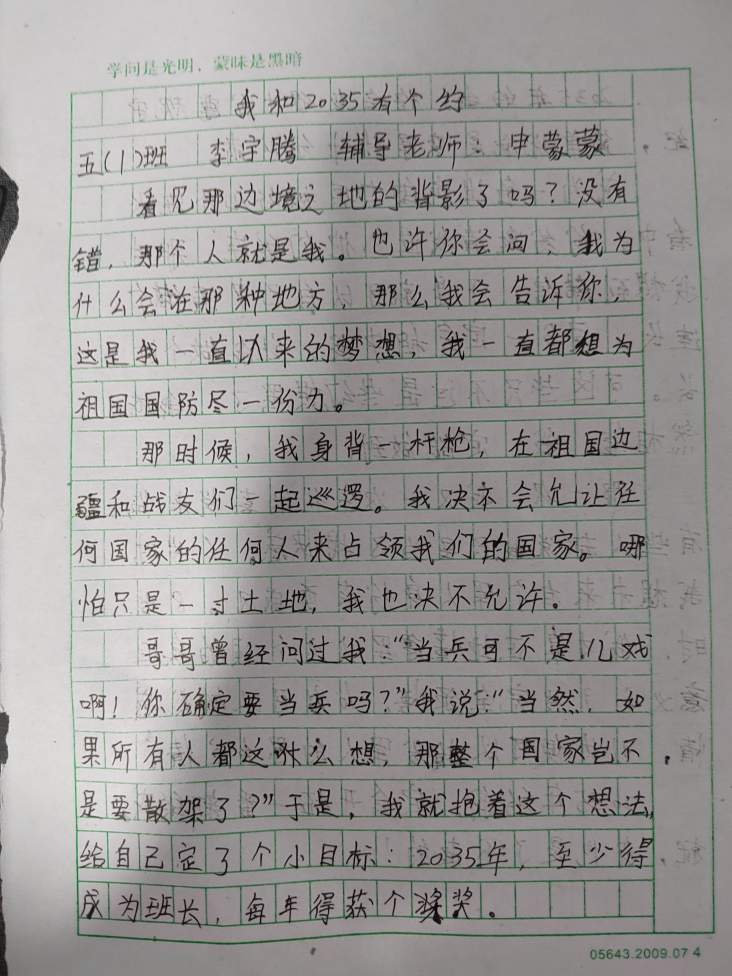 学问是光明，蒙昧是黑暗
我和2035有个约
五(1)班 李宇腾 辅导老师：申蒙蒙
看见那边境之地的背影了吗？没有
错，那个人就是我。也许你会问，我为
什么会在那种地方，那么我会告诉你，
这是我一直以来的梦想，我一直都想为
祖国国防尽一份力。
那时候，我身背一杆枪，在祖国边
疆和战友们一起巡逻。我决不会允让任
何国家的任何人来占领我们的国家。哪
怕只是一寸土地，我也决不允许.
哥哥曾经问过我：“当兵可不是儿戏
啊！你确定要当兵吗？”我说：“当然，如
果所有人都这么想，那整个国家岂不
是要散架了？”于是，我就抱着这个想法，
给自己定了个小目标：2035年，至少得
成为班长，每年得获个奖。
05643.2009.07 4